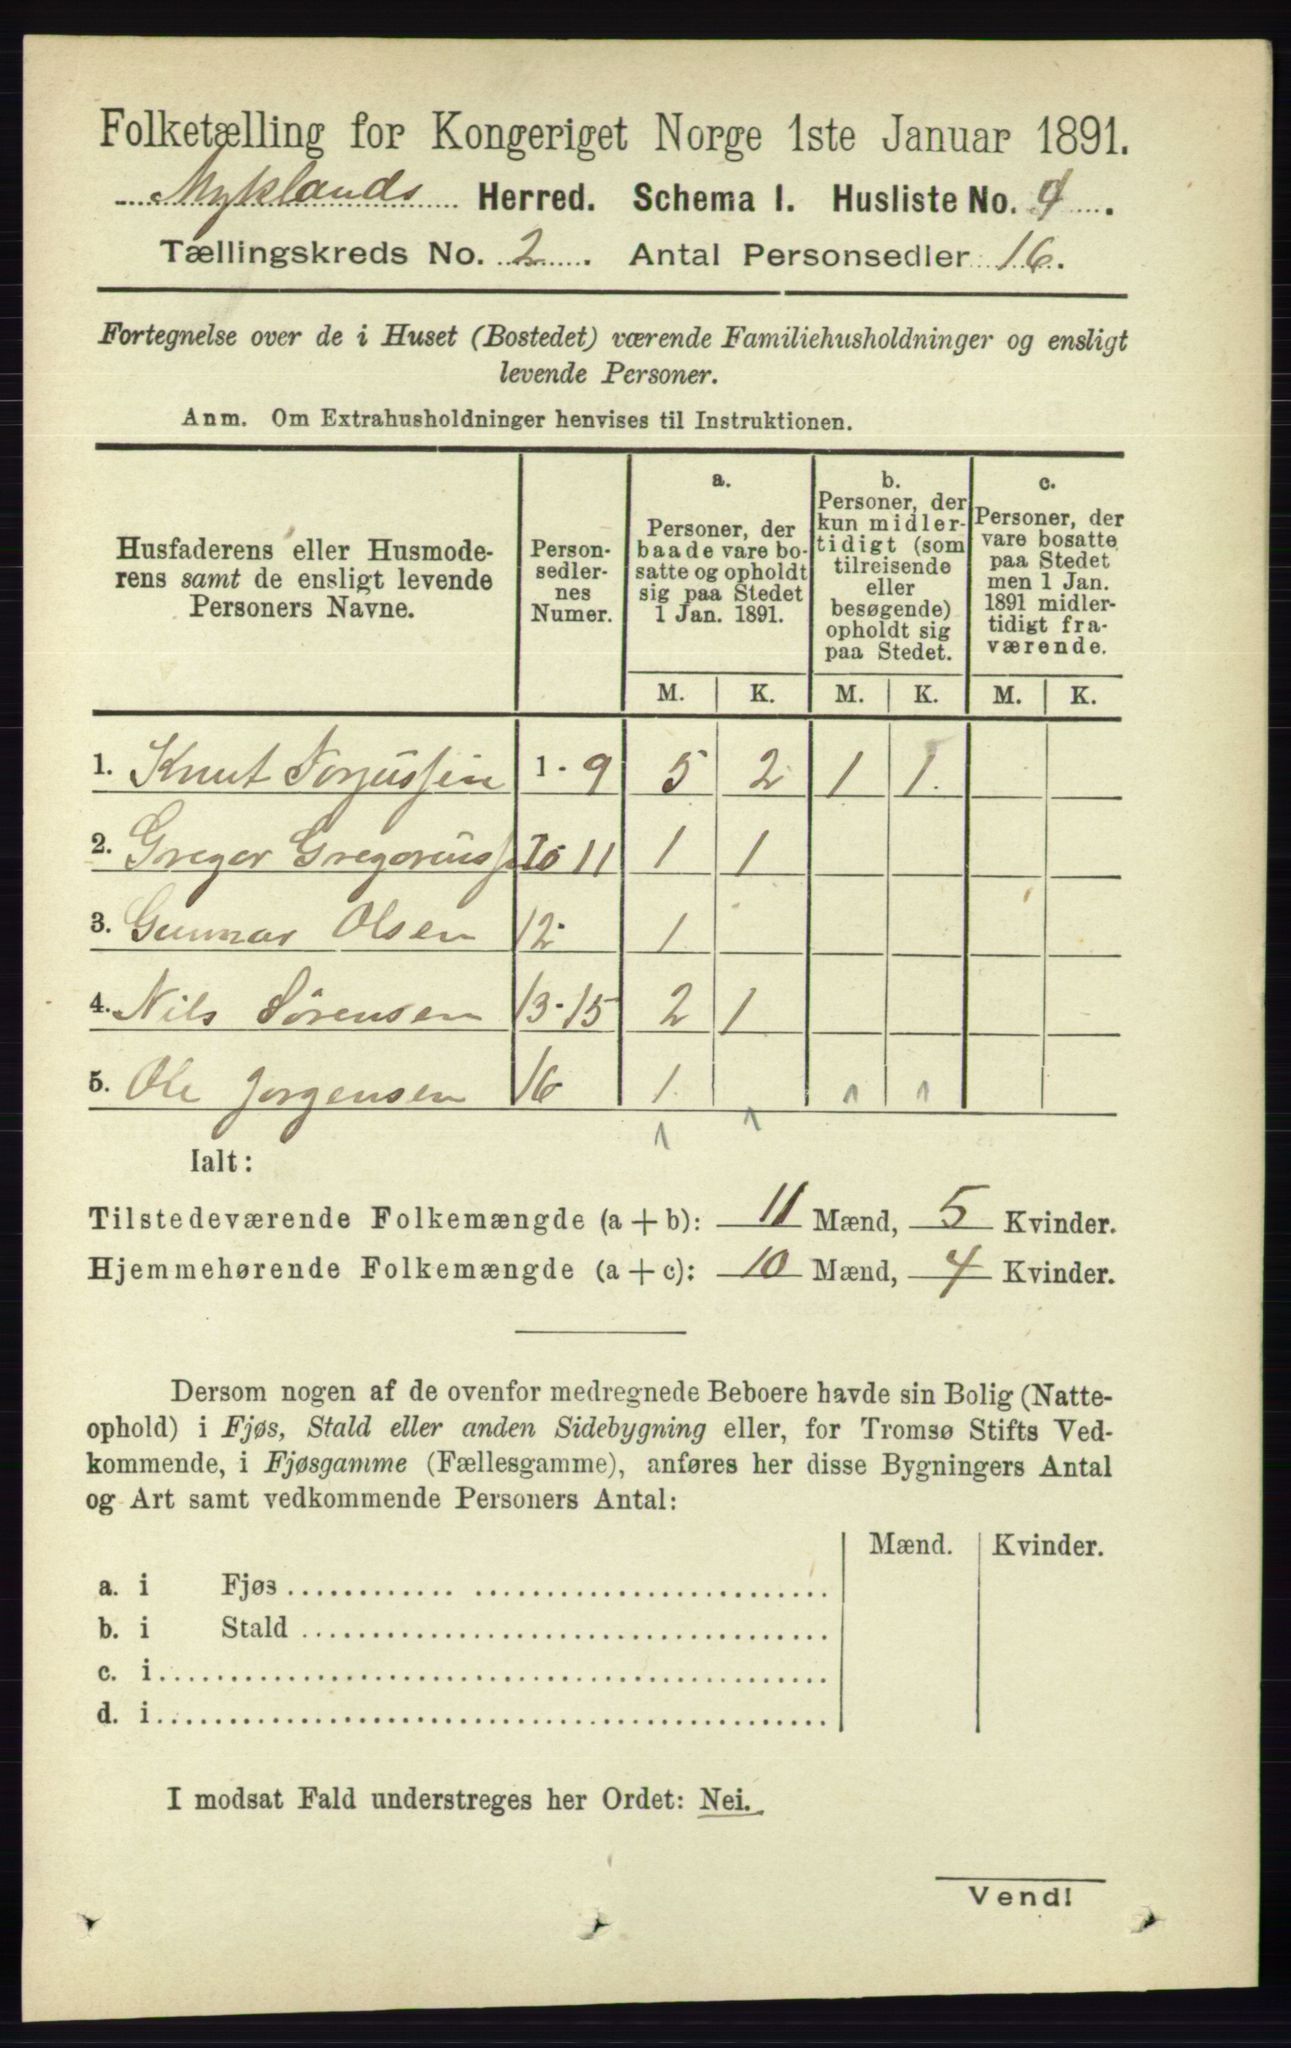 Folketælling for Kongeriget Norge 1ste Januar 1891.
Myklands Herred. Schema I. Husliste No. 4.
Tællingskreds No. 2. Antal Personsedler 16.
Fortegnelse over de i Huset (Bostedet) værende Familiehusholdninger og ensligt
levende Personer.
Anm. Om Extrahusholdninger henvises til Instruktionen.
Husfaderens eller Husmode-
rens samt de ensligt levende
Personers Navne.
Person-
sedler-
nes
Numer.
a.
Personer, der
baade vare bo-
satte og opholdt
sig paa Stedet
1 Jan. 1891.
b.
Personer, der
kun midler-
tidigt (som
tilreisende
eller
besøgende)
opholdt sig
paa Stedet.
c.
Personer, der
vare bosatte
paa Stedet
men 1 Jan.
1891 midler-
tidigt fra-
værende.
M. K. M. K. M. K.
1. Knut Torjussen 1-9 5 2 1 1
2. Gregor Gregoriuss 10 11 1 1
3. Gunnar Olsen 12 1
4. Nils Sörensen 13-15 2 1
5. Ole Jorgensen 16 1
Ialt:
Tilstedeværende Folkemængde (a + b): 11 Mænd, 5 Kvinder.
Hjemmehørende Folkemængde (a + c): 10 Mænd, 4 Kvinder.
Dersom nogen af de ovenfor medregnede Beboere havde sin Bolig (Natte-
ophold) i Fjøs, Stald eller anden Sidebygning eller, for Tromsø Stifts Ved-
kommende, i Fjøsgamme (Fællesgamme), anføres her disse Bygningers Antal
og Art samt vedkommende Personers Antal:
Mænd. Kvinder.
a. i Fjøs
b. i Stald
c. i
d. i
I modsat Fald understreges her Ordet: Nei.
Vend!